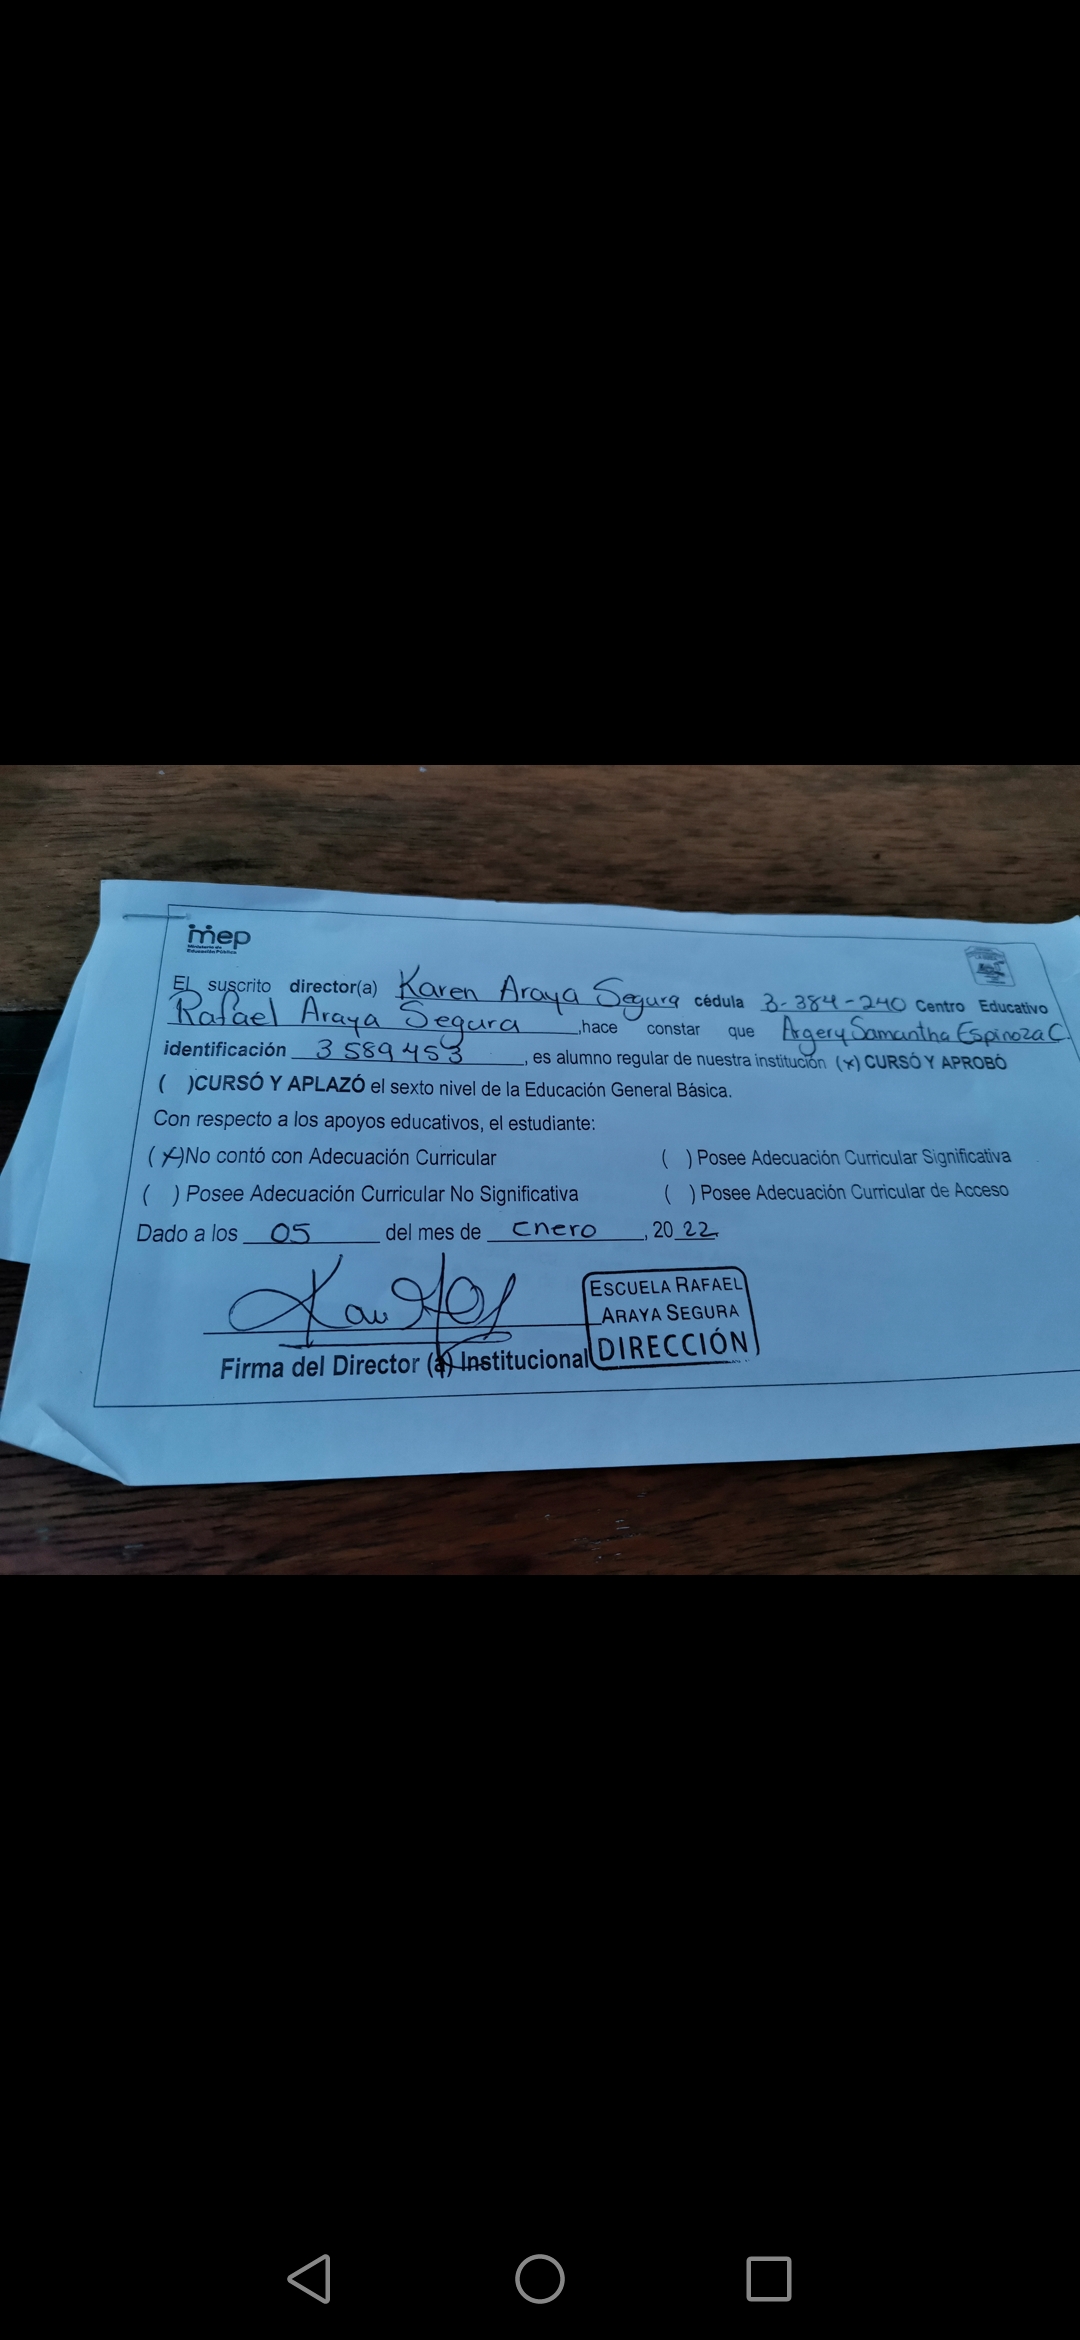 mep
Ministerio de
Educación Pública
El suscrito director(a) Karen Araya Segura cédula 3-384-240 Centro Educativo
Rafael Araya Segura ,hace constar que Argery Samantha Espinoza C.
identificación 3 589 453 , es alumno regular de nuestra institución (x) CURSÓ Y APROBÓ
( )CURSÓ Y APLAZÓ el sexto nivel de la Educación General Básica.
Con respecto a los apoyos educativos, el estudiante:
(x)No contó con Adecuación Curricular ( ) Posee Adecuación Curricular Significativa
( ) Posee Adecuación Curricular No Significativa ( ) Posee Adecuación Curricular de Acceso
Dado a los 05 del mes de Enero , 20 22
Firma del Director (a) Institucional
ESCUELA RAFAEL
ARAYA SEGURA
DIRECCIÓN